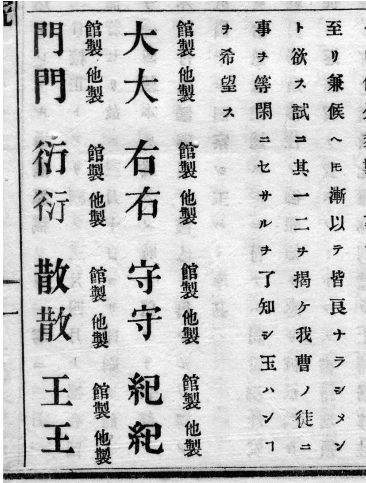 至リ兼候ヘヒ漸以テ皆良ナラシメン
ト欲ス試ニ其一二ヲ揭ケ我曹ノ徒ニ
事ヲ等閑ニセサルヲ了知シ玉ハンヿ
ヲ希望ス
館製 他製 館製 他製 館製 他製 館製 他製
大大 右右 守守 紀紀
館製 他製 館製 他製 館製 他製 館製 他製
門門 衍衍 散散 王王